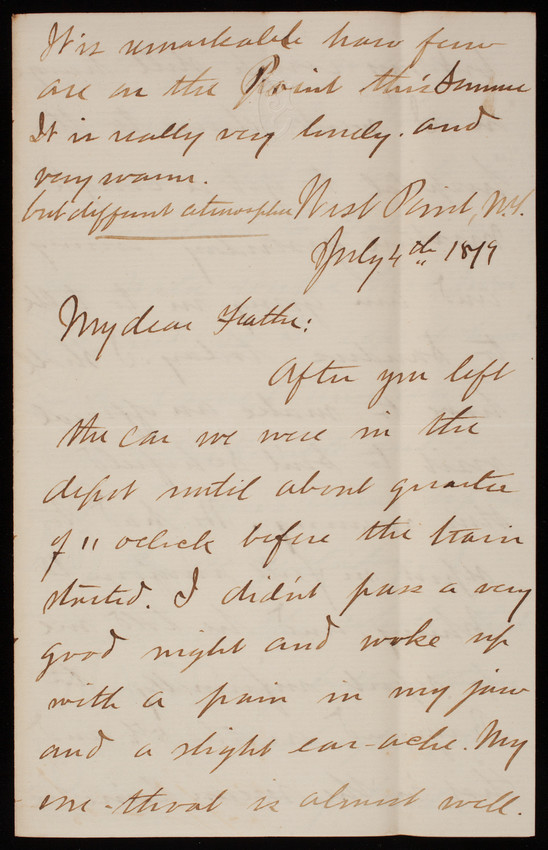 It is remarkable how few
are on the Point this Summer
It is really very lonely. and
very warm.
but different atmosphere West Point, N.Y.
July 4th 1879
My dear Father:
After you left
the car we were in the
depot until about quarter
of 11 oclock before the train
started. I didn't pass a very
good night and woke up
with a pain in my jaw
and a slight ear-ache. My
-throat is almost well.